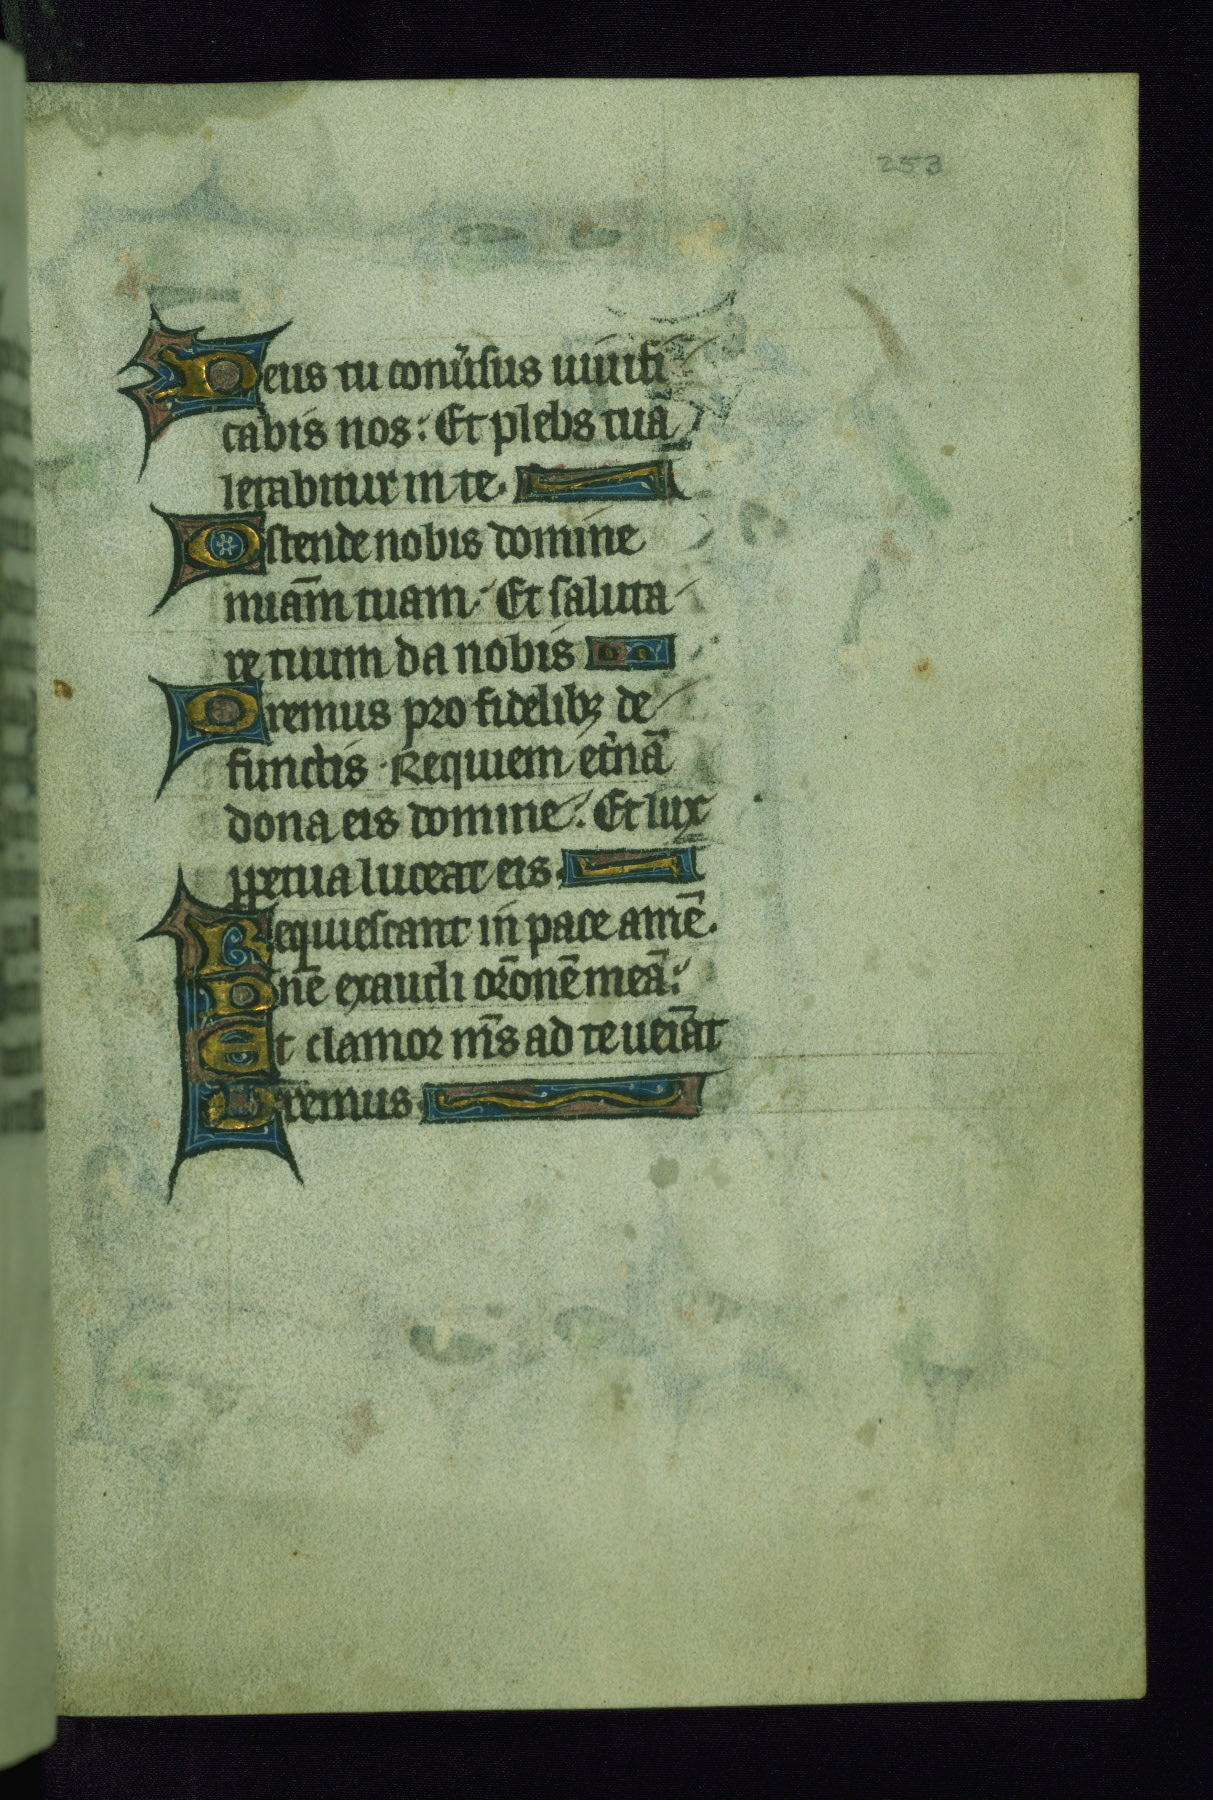 253
Deus tu conu̾sus uiuifi
cabis nos: Et plebs tua
letabitur in te.
Ostende nobis domine
miam̄ tuam: Et saluta
re tuum da nobis
Oremus pro fidelibꝫ de
functis. Requiem et̾nā
dona eis domine: Et lux
ꝑpetua luceat eis.
Requiescant in pace amē.
Dn̄e exaudi or̄onē meā:
Et clamor m̄s ad te ueiāt
Oremus